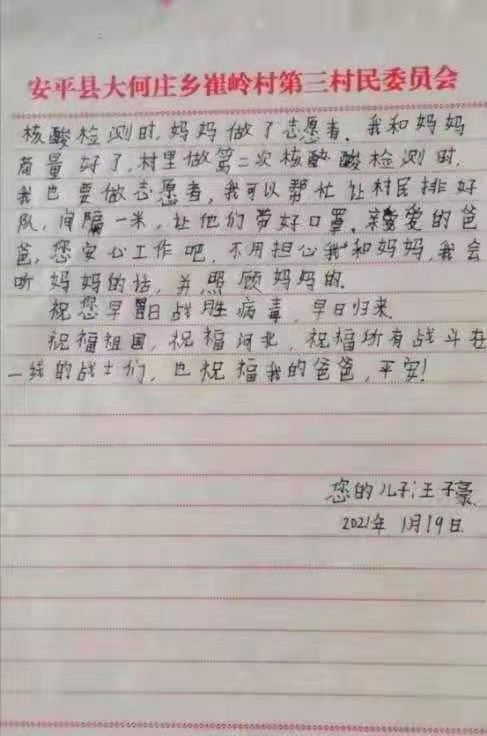 安平县大何庄乡崔岭村第三村民委员会
核酸检测时,妈妈做了志愿者。我和妈妈
商量好了,村里做第二次核酸检测时,
我也要做志愿者,我可以帮忙让村民排好
队,间隔一米,让他们带好口罩。亲爱的爸
爸,您安心工作吧,不用担心我和妈妈,我会
听妈妈的话,并照顾妈妈的。
祝您早日战胜病毒,早日归来。
祝福祖国,祝福河北,祝福所有战斗在
一线的战士们,也祝福我的爸爸,平安!
您的儿子:王子豪
2021年1月19日